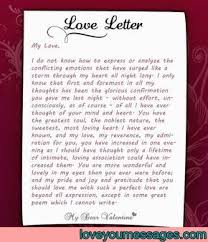 Love Letter
My Love,
I do not know how to express or analyze the
conflicting emotions that have surged like a
storm through my heart all night long. I only
know that first and foremost in all my
thoughts has been the glorious confirmation
you gave me last night - without effort, un-
consciously, as of course - of all I have ever
thought of your mind and heart. You have
the greatest soul, the noblest nature, the
sweetest, most loving heart I have ever
known, and my love, my reverence, my admi-
ration for you, you have increased in one even-
ing as I should have thought only a lifetime
of intimate, loving association could have in-
creased them. You are more wonderful and
lovely in my eyes than you ever were before;
and my pride and joy and gratitude that you
should love me with such a perfect love are
beyond all expression, except in some great
poem which I cannot write.
My Dear Valentine
loveyoumessages.com